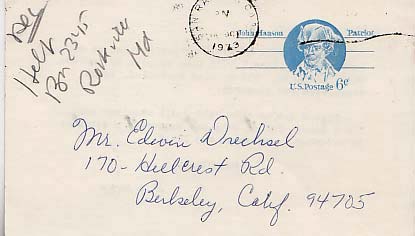 Dec
Help
Box 2345
Rockville
Md
SAN RA
PM
1973
John Hanson Patriot
U.S. Postage 6¢
Mr. Edwin Drechsel
170 - Hillcrest Rd.
Berkeley, Calif. 94705